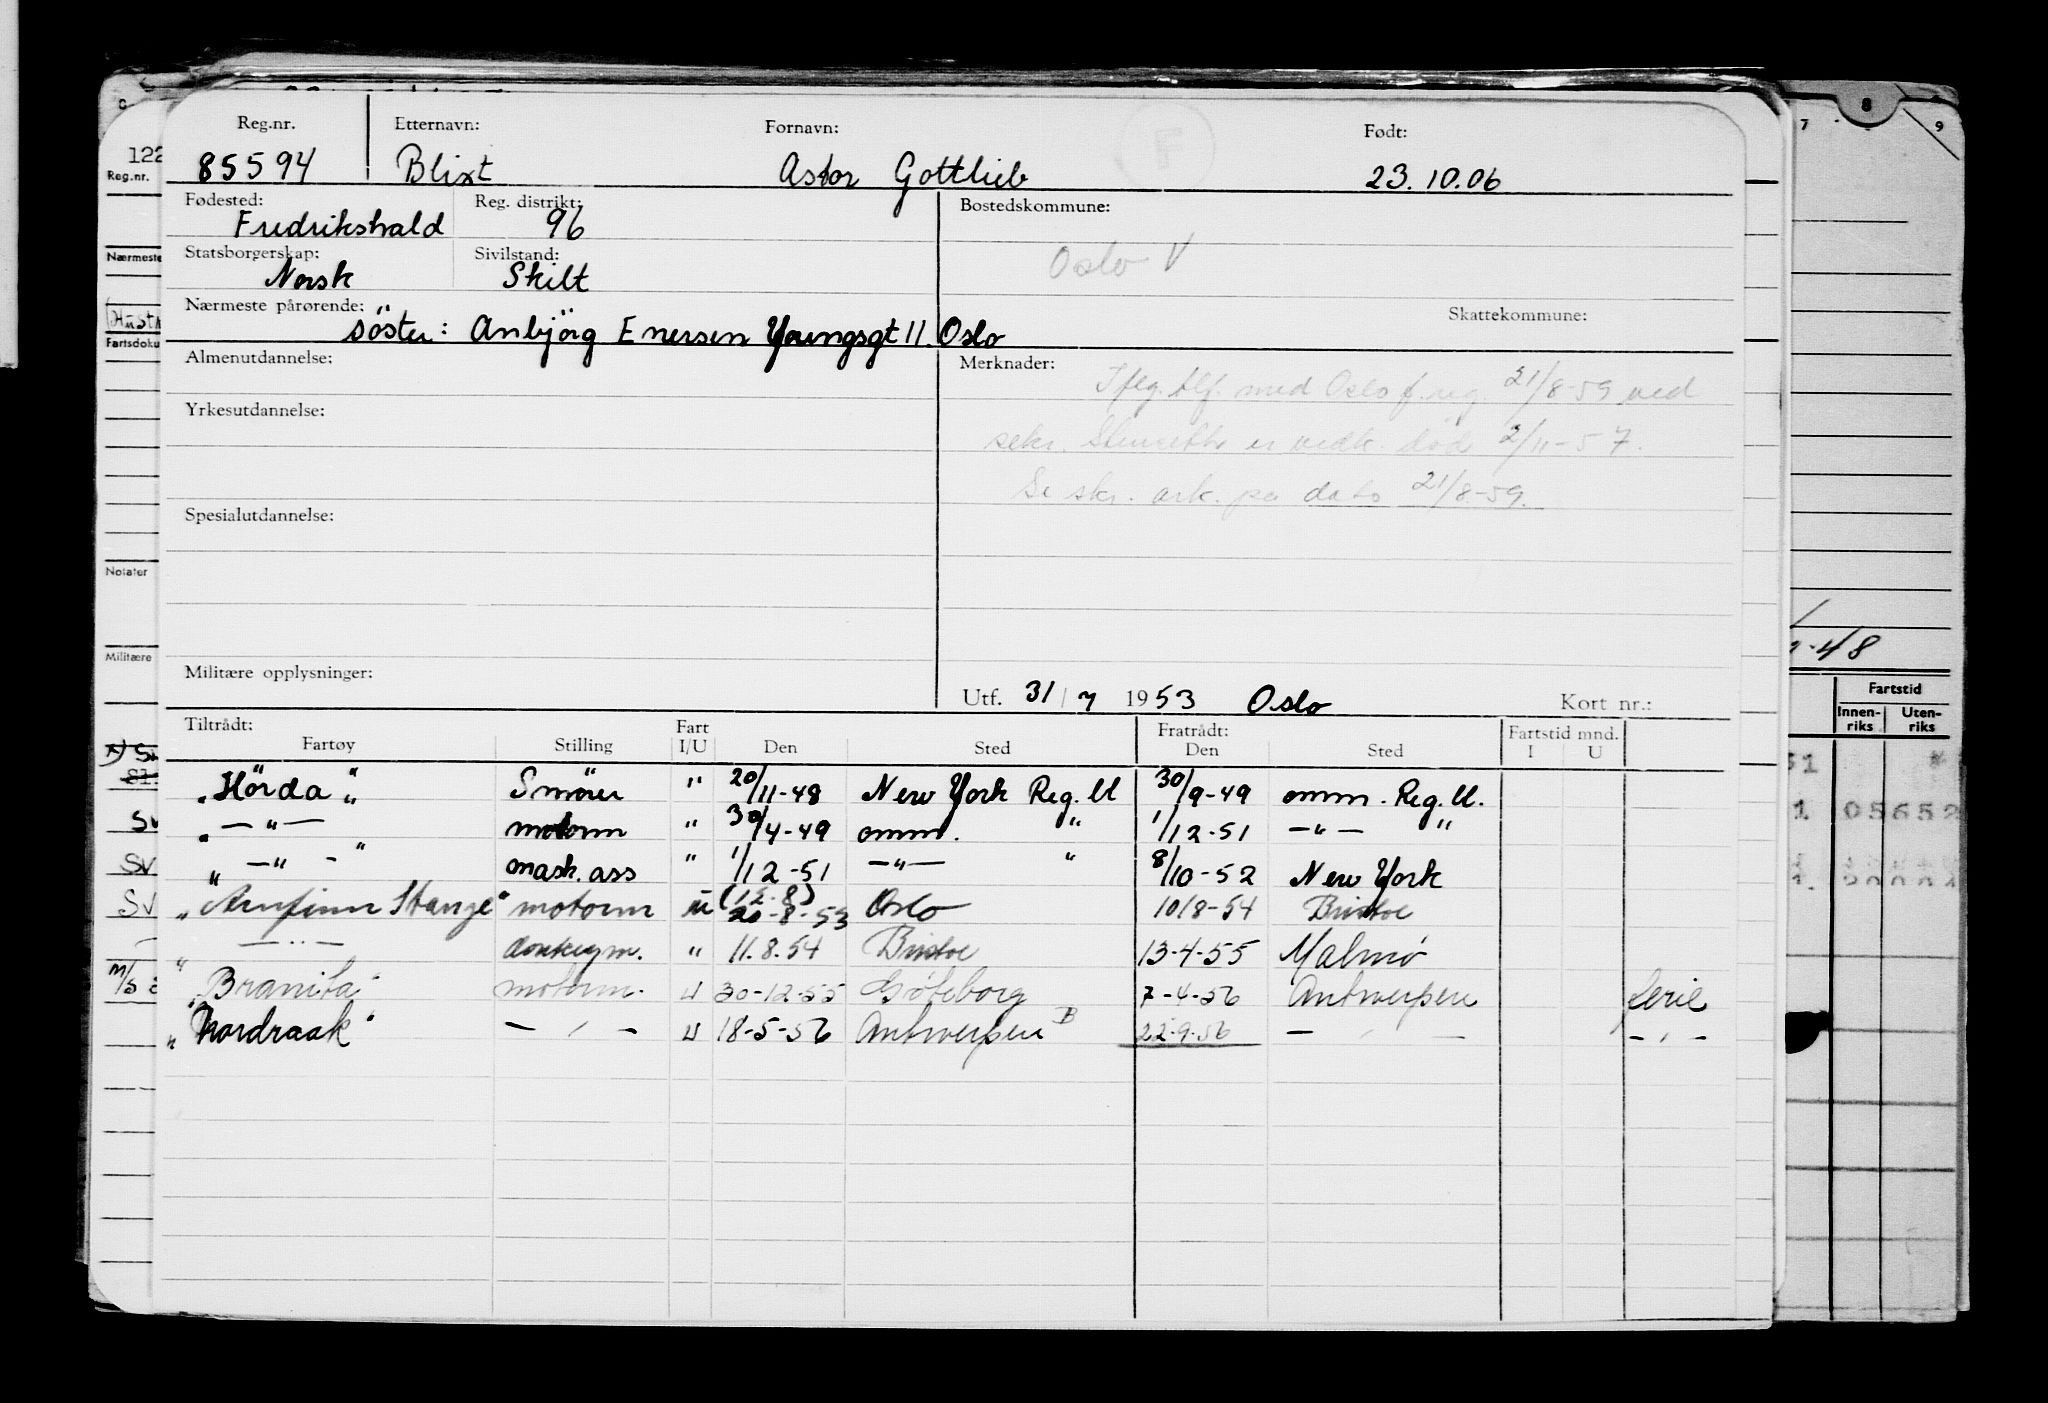 Reg.nr. Etternavn: Fornavn: F Født:
85594 Blixt Astor Gottlieb 23.10.06
Fødested: Reg. distrikt: Bostedskommune:
Fredrikshald 96
Oslo V
Statsborgerskap: Sivilstand:
Norsk Skilt
Nærmeste pårørende: Skattekommune:
söster: Anbjörg Enersen Youngsgt 11. Oslo
Almenutdannelse: Merknader:
Iflg. tlf. med Oslo f.reg. 21/8-59 ved
Yrkesutdannelse:
sekr. er vedk. död 2/11-57.
Se skr. ark. på dato 21/8-59.
Spesialutdannelse:
Militære opplysninger:
Utf. 31/7 1953 Oslo Kort nr.:
Tiltrådt: Fart Fratrådt: Fartstid mnd.
Fartøy Stilling I/U Den Sted Den Sted I U
"Hörda" Smörer " 20/11-48 New York Reg. U 30/9-49 omm. Reg. U.
" — " — motorm " 30/4-49 omm. " 1/12-51 — " — "
" — " - " mask. ass " 1/12-51 — " — " 8/10-52 New York
"Arnfinn Stange" motorm U (12.8) 20-8-53 Oslo 10/8-54 Bristol
" — " — donkeym. " 11.8.54 Bristol 13-4-55 Malmö
"Branita" motorm. U 30-12-55 Göteborg 7-4-56 Antwerpen ferie
"Nordraak" — ' — U 18-5-56 Antwerpen B 22-9-56 — ' — — ' —
122
Reg.nr.
Nærmeste
Fartsdoku
Notater
Militære
SV
SV
SV
M/S
7 8 9
-48
Fartstid
Innen-
riks
Uten-
riks